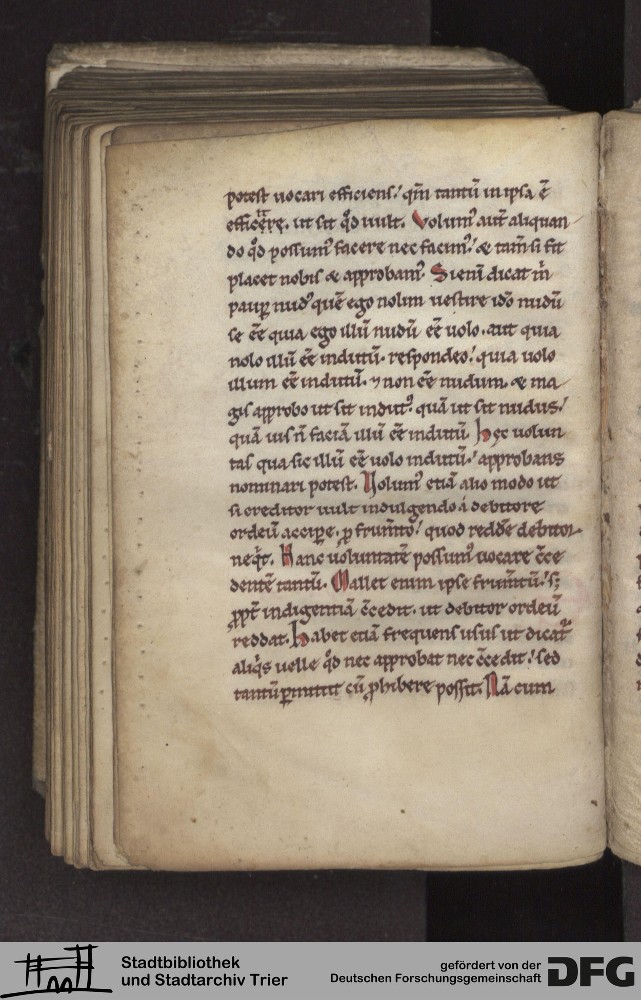 potest uocari efficiens. qm̄ tantū in ipsa ē
efficere. ut sit qd̓ uult. Volum᷒ aut̄ aliquan
do qd̓ possum᷒ facere nec facim᷒. & tam̄ si fit
placet nobis & approbam᷒. Si enī dicat m̄
paup̄ nud᷒ quē ego nolim uestire idō nudū
se ēē quia ego illū nudū ēē uolo. aut quia
nolo illū ēē indutū. respondeo. quia uolo
illum ēē indutū. ⁊ non ēē nudum. & ma
gis approbo ut sit indut᷒. quā ut sit nudus.
quā uis n̄ faciā illū ēē indutū. Hęc uolun
tas qua sic illū ēē uolo indutū. approbans
nominari potest. Volum᷒ etiā alio modo ut
si creditor uult indulgendo a debitore
ordeū accipe. ꝓ frum̄to. quod reddē debitor
neqt. Hanc uoluntatē possum᷒ uocare cc̄e
dentē tantū. Mallet enim ipse frum̄tū. s;
ꝓpt̄ indigentiā cc̄edit. ut debitor ordeū
reddat. Habet etiā frequens usus ut dicat᷑
aliqs uelle qd̓ nec approbat nec cc̄edit. sed
tantū ꝑmittit cū ꝓhibere possit. Nā cum
Stadtbibliothek
und Stadtarchiv Trier
gefördert von der
Deutschen Forschungsgemeinschaft
DFG